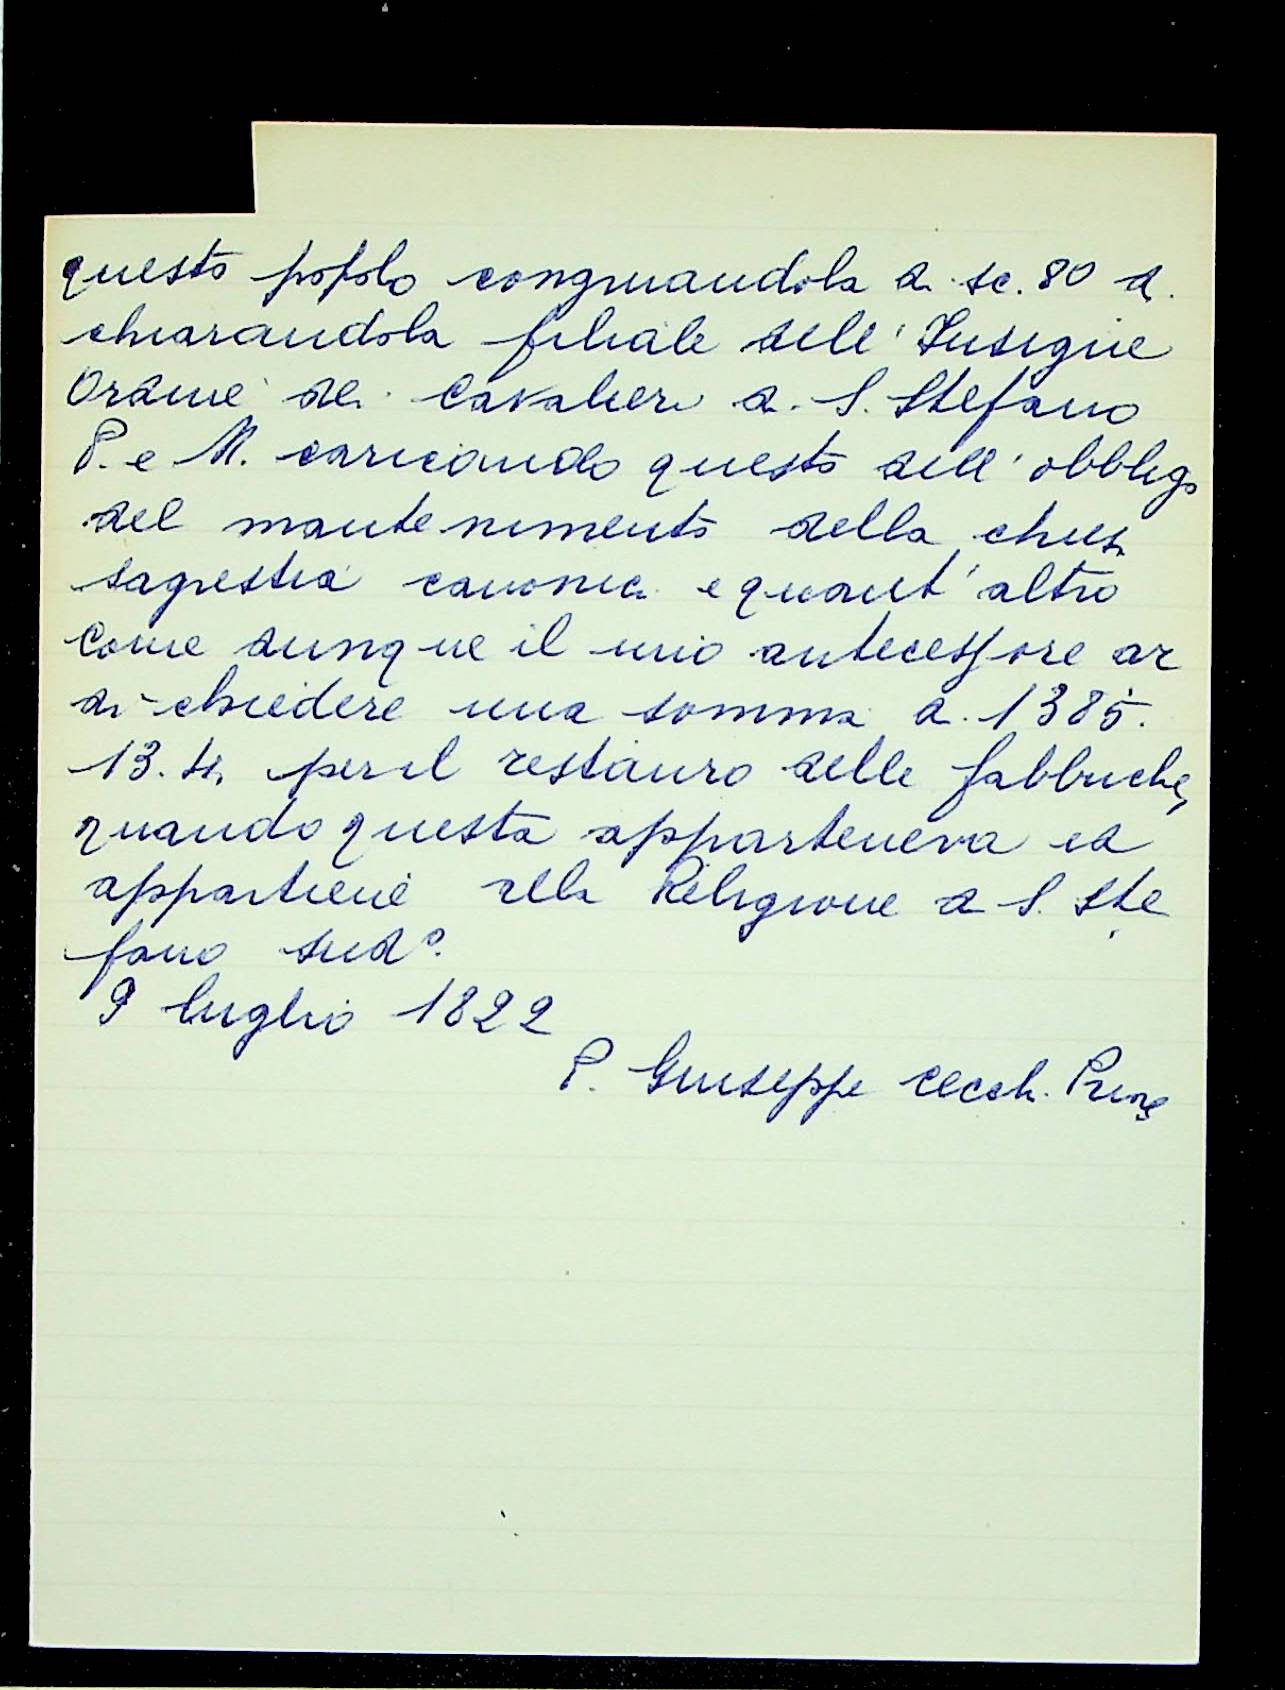 questo popolo congruandola di sc. 80 di
chiarandola filiale dell'Insigne
Ordine dei Cavalieri di S. Stefano
P. e M. caricando questo dell'obbligo
del mantenimento della chiesa
sagrestia canonica e quant'altro
Come dunque il mio antecessore ar
di chiedere una somma di 1385.
13.4, per il restauro delle fabbriche,
quando questa apparteneva ed
appartiene alla Religione di S. Ste
fano sudo.
9 luglio 1822
P. Giuseppe Cecchi Priore